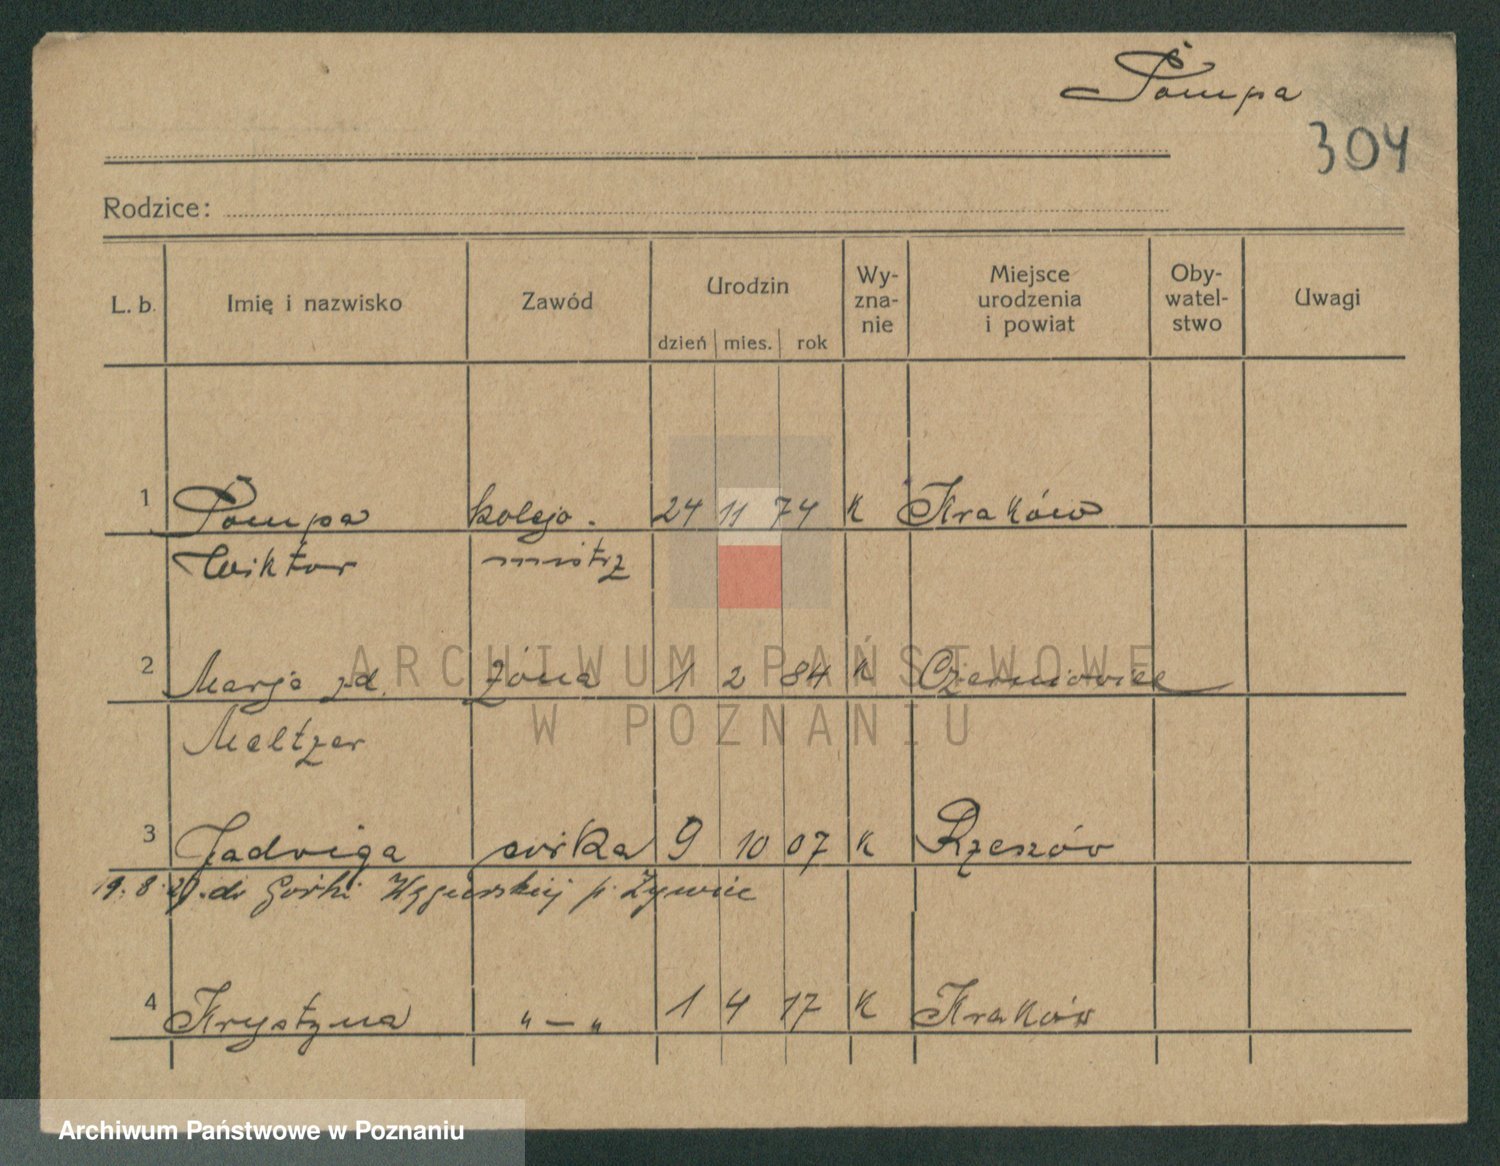 Pompa
304
Rodzice:
L. b. Imię i nazwisko Zawód Urodzin dzień mies. rok Wy-zna-nie Miejsce urodzenia i powiat Oby-watel-stwo Uwagi
1 Pompa kolejo. 24 11 74 K Kraków
Wiktor mistrz
2 Marja zd. Żona 1 2 84 K Czerniowice
Meltzer
3 Jadwiga córka 9 10 07 K Rzeszów
19.8.29. do Górki Węgierskiej p. Żywiec
4 Krystyna " — " 1 4 17 K Kraków
ARCHIWUM PAŃSTWOWE
W POZNANIU
Archiwum Państwowe w Poznaniu